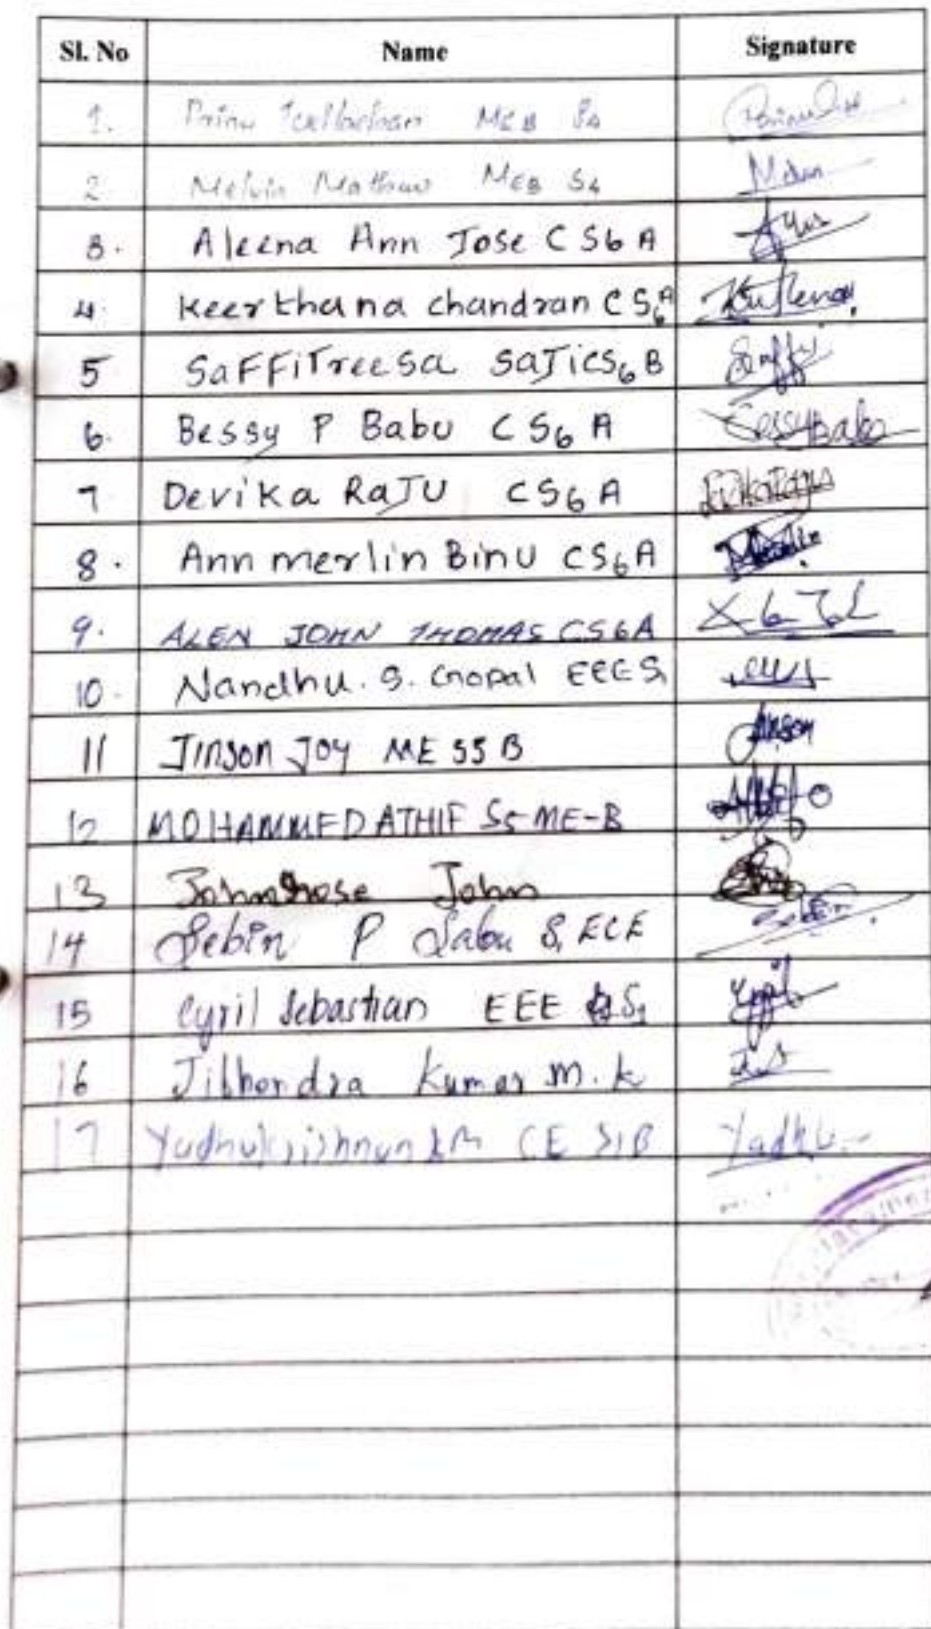 Sl. No Name Signature
1. Prinu MEB S4
2 Melvin Mathew MEB S4 Melvin
3. Aleena Ann Jose CS6 A
4. Keerthana chandran CS6 A
5 SaFFiTreesa SaJi CS6 B Saffi
6. Bessy P Babu CS6 A BessyBabu
7 Devika RaJU CS6 A
8. Ann merlin Binu CS6A
9. ALEN JOHN THOMAS CS6A
10. Nandhu. S. Gopal EEE S1
11 Jinson Joy ME S5 B Jinson
12 MOHAMMED ATHIF S5 ME-B
13 Johnshose John
14 Sebin P Sabu S1 ECE Sebin
15 Cyril Sebastian EEE S1 Cyril
16 Jibhendra Kumar M. K
17 Yadhukrishnan KM CE S1B Yadhu